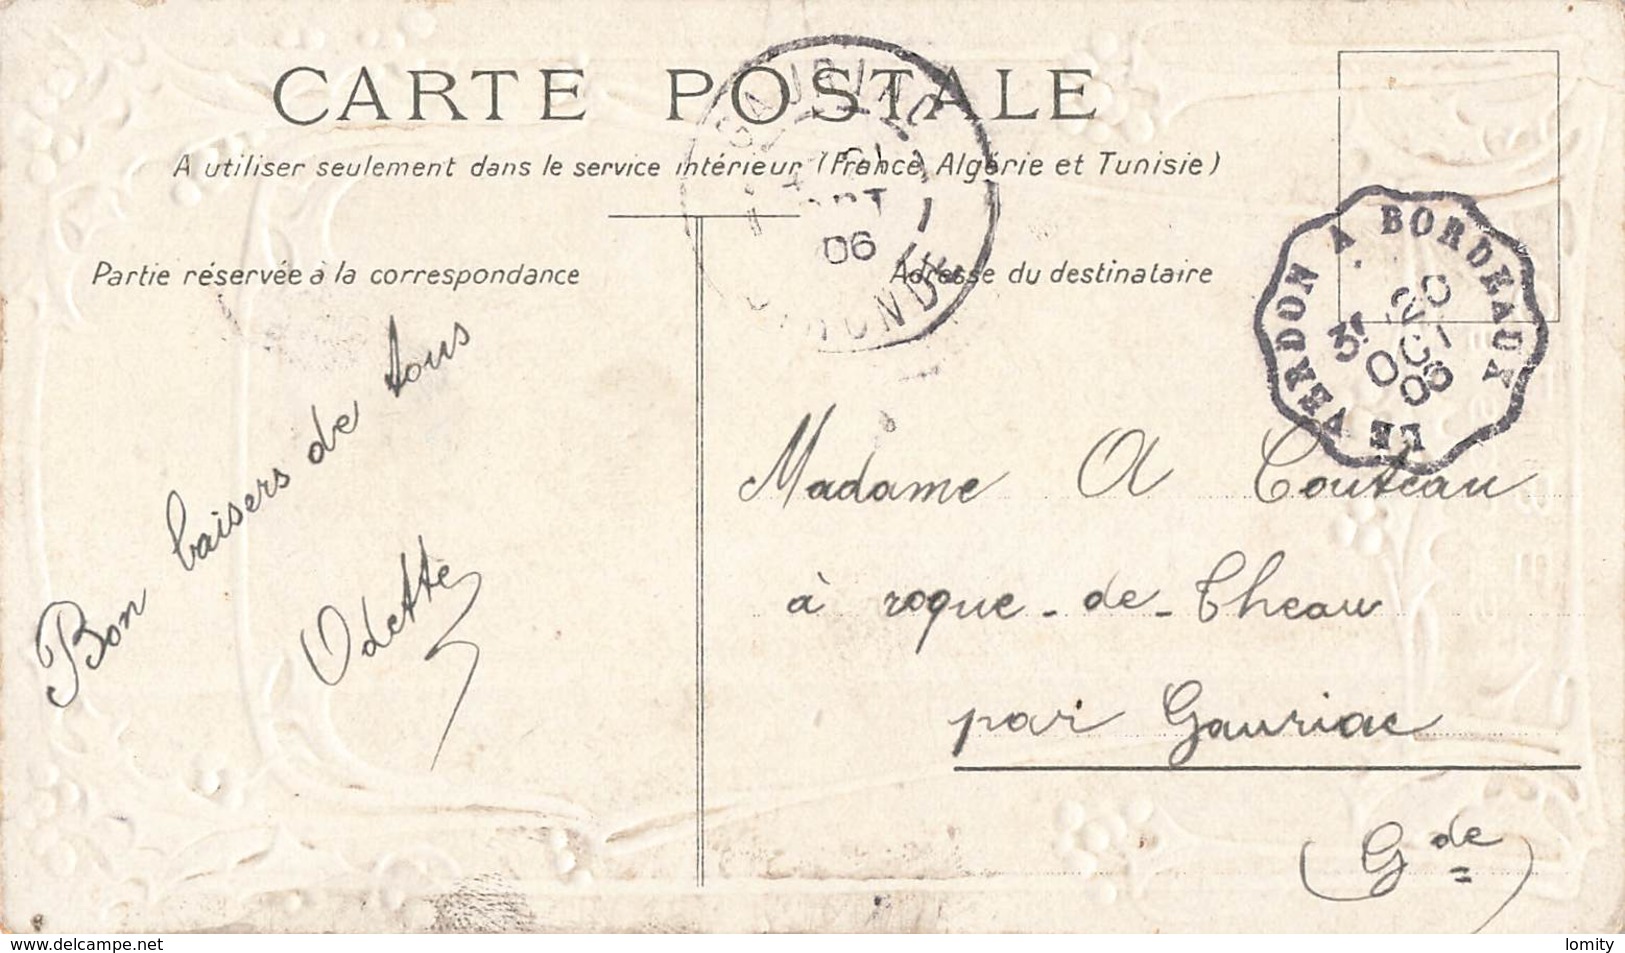 CARTE POSTALE
A utiliser seulement dans le service intérieur (France, Algérie et Tunisie)
Partie réservée à la correspondance
Adresse du destinataire
GAURIAC
06
GIRONDE
LE VERDON A BORDEAUX
3E
20
OCT
06
Bon baisers de tous
Odette
Madame A Couteau
à roque-de-Theau
par Gauriac
(Gde)
www.delcampe.net
lomity